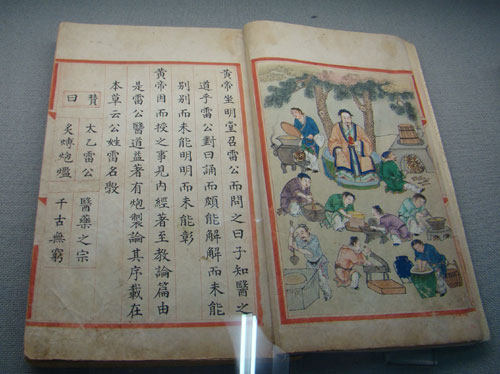 黃帝坐明堂召雷公而問之曰子知醫之
道乎雷公對曰誦而頗能解解而未能
別別而未能明明而未能彰
黃帝因而授之事見內經著至教論篇由
是雷公醫道益著有炮製論其序載在
本草云公姓雷名斅
贊 太乙雷公 醫藥之宗
曰 炙煿炮爁 千古無窮